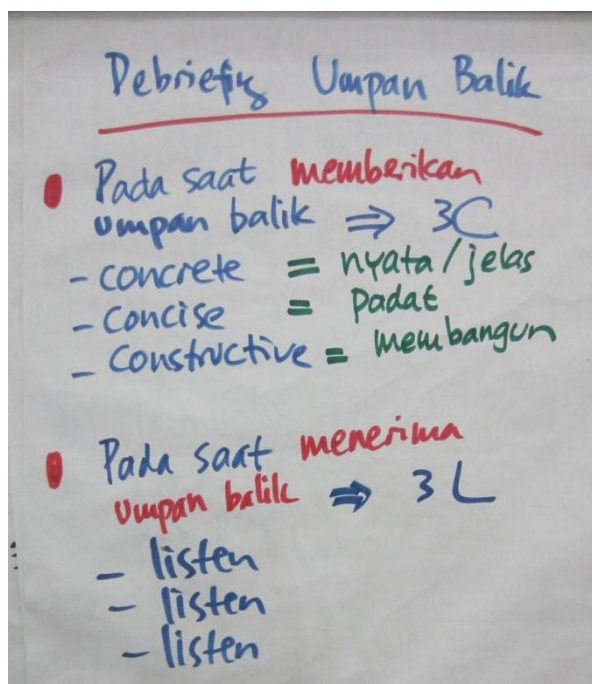 Debriefing Umpan Balik
Pada saat memberikan
umpan balik ⇒ 3C
- concrete = nyata/jelas
- concise = padat
- constructive = membangun
Pada saat menerima
umpan balik ⇒ 3L
- listen
- listen
- listen